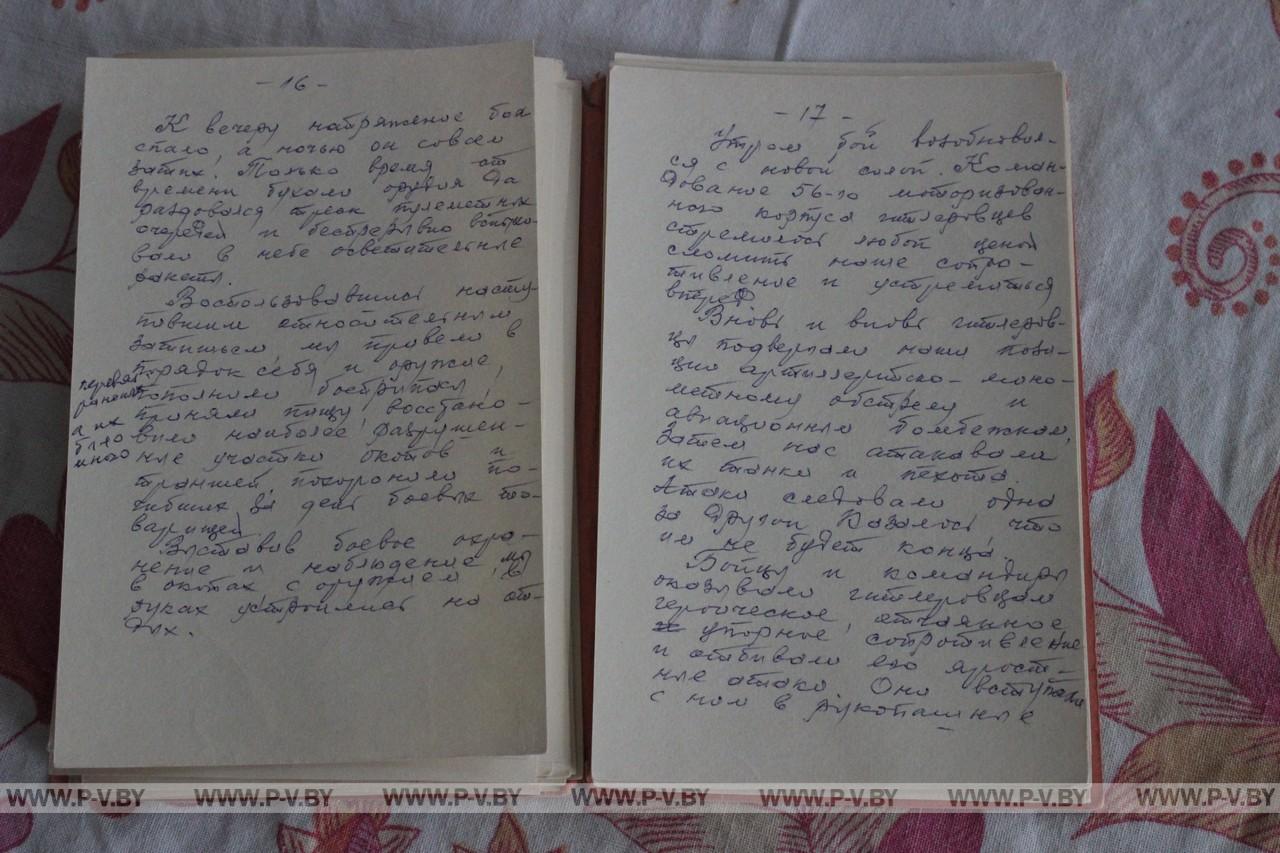 - 16 -
К вечеру напряжение боя
спало, а ночью он совсем
затих. Только время от
времени бухали орудия да
раздовался треск пулеметных
очередей и беспрерывно вспыхи-
вали в небе осветительные
ракеты.
Воспользовавшись насту-
пившим относительным
затишьем мы привели в
порядок себя и оружие,
пополнили боеприпасы,
приняли пищу, восстано-
вили наиболее разрушен-
ные участки окопов и
траншей похоронили по-
гибших за день боевых то-
варищей.
Выставив боевое охра-
нение и наблюдение, мы
в окопах с оружием в
руках устроились на от-
дых.
перевяз
раненых
а их
было
много
- 17 -
Утром бой возобновил-
ся с новой силой. Коман-
дование 56-го моторизован-
ного корпуса гитлеровцев
стремилось любой ценой
сломить наше сопро-
тивление и устремиться
вперед
Вновь и вновь гитлеров-
цы подвергали наши пози-
ции артиллерийско-мино-
метному обстрелу и
авиационным бомбежкам,
затем нас атаковали
их танки и пехота.
Атаки следовали одна
за другой Казалось что
им не будет конца.
Бойцы и командиры
оказывали гитлеровцам
героическое, отчаянное
упорное сопротивление
и отбивали его ярост-
ные атаки. Они вступали
с ним в рукопашные
WWW.P-V.BY WWW.P-V.BY WWW.P-V.BY WWW.P-V.BY WWW.P-V.BY WWW.P-V.BY WWW.P-V.BY